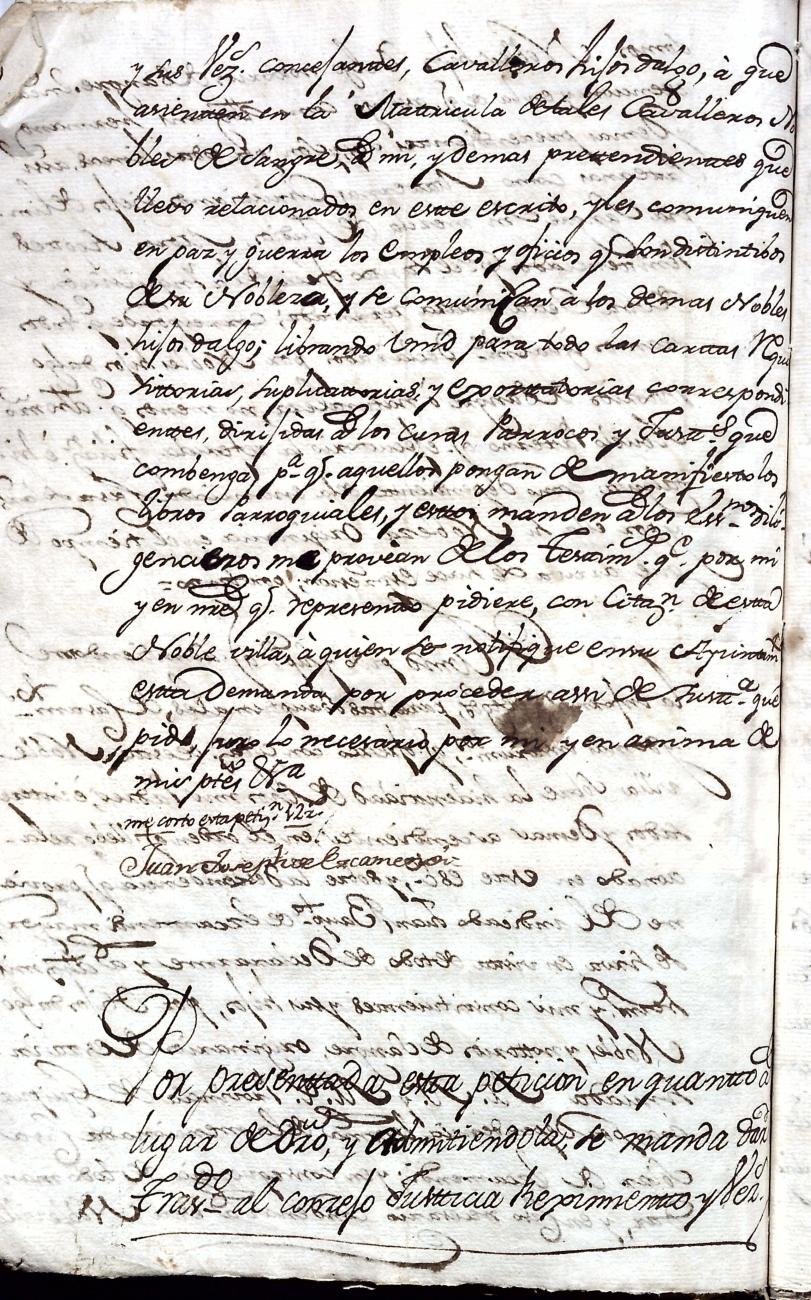 y sus Vez.s concejantes, Cavalleros hijos dalgo, à que
assienten en la Matricula de tales Cavalleros No
bles de Sangre, à mi, y demas prettendientes que
llevo relacionados en este escrito, y les comuniquen
en paz y guerra los empleos y oficios q.e son distintibos
de su Nobleza, y se comunican à los demas Nobles
hijos dalgo; librando Vmd para todo las carttas Requi
sittorias, suplicattorias, y exorttatorias correspondi
entes, dirijidas à los curas Parrocos y Justt.s que
combenga, p.a q.e aquellos pongan de manifiesto los
libros Parroquiales, y estos manden à los Ess.nos dili
gencieros me provean de los Testim.os q.e por mi
y en nre q.e represento pidiere, con Citaz.n de estta
Noble villa, à quien se notifique en su Ayuntam.to
estta Demanda por proceder assi de Justt.a que
pido, juro lo necesario por mi y en anima de
mis ptes &.a
Juan Joseph de Escamez
Por presenttada estta peticion en quantto à
lugar de dro, y admitiendola, se manda dar
tras.do al concejo Justticia Rejimiento y Vez.s